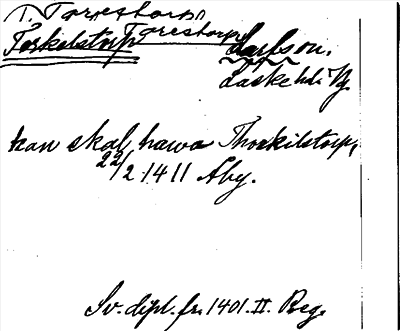 T. Torestorp
Torkelstorp Torestorp Larfson.
Laske hd. Vg.
han skal hawa Thorkilstorp,
22/2 1411 Aby.
Sv. dipl. fr. 1401. II. Reg.